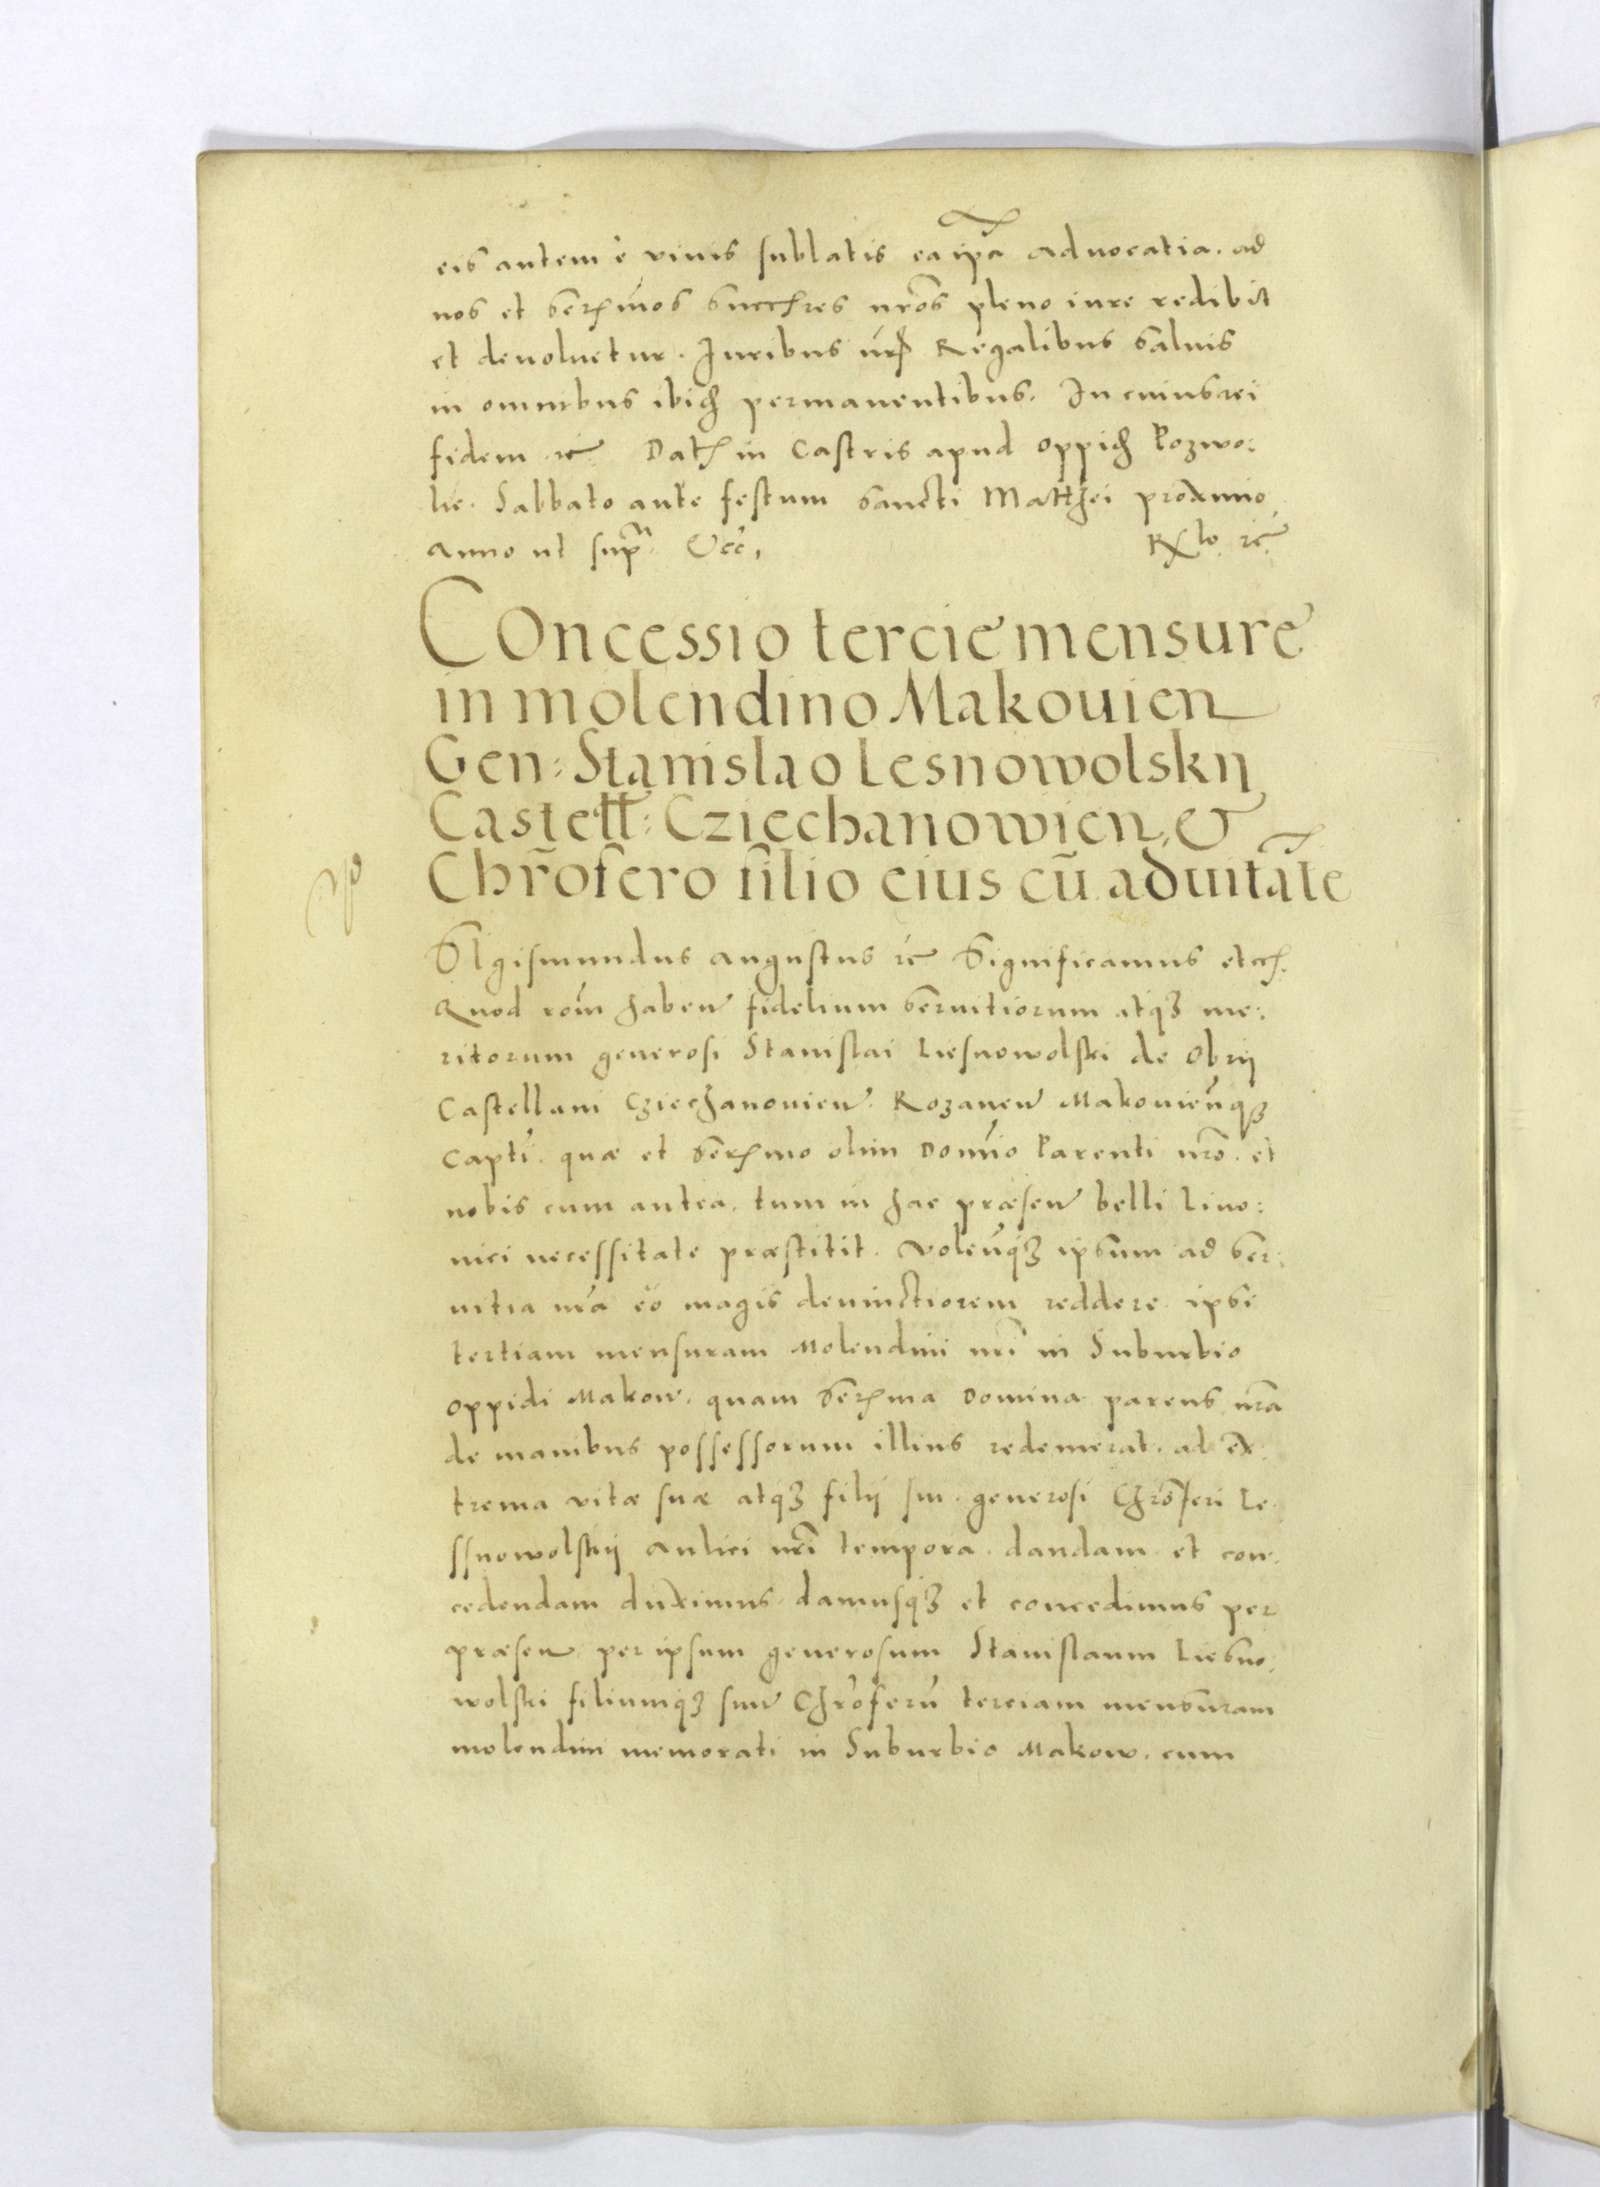 eis autem è viuis sublatis ea ip̃a aduocatia. ad
nos et Ser͂mos Succres nr̃os pleno iure redibit
et deuoluetur. Juribus nr̃is Regalibus Saluis
in omnibus ibid permanentibus. In cuius rei
fidem etc Dat in Castris apud oppid Pozwo:
lie. Sabbato ante festum Sancti Matthei proximo
Anno ut supra
COncessio tercie mensure
in molendino Makouien
Gen: Stanislao Lesnowolskij
Castell: Cziechanowien, &
Chr̃ofero filio eius cũ aduitate
SIgismundus Augustus etc Significamus etc.
Quod rom̃ haben fidelium Seruitiorum atq3 me:
ritorum generosi Stanislai Liesnowolski de Obrij
Castellani Cziechanouien. Rozanen Makouienq3
Capt̃i. quæ et Ser͂mo olim Domio Parenti nr̃o. et
nobis cum antea, tum in hac præsen belli Liuo:
nici necessitate præstitit. Volenq3 ipsum ad Ser:
uitia nr̃a eo magis deuinctiorem reddere. ipsi
tertiam mensuram Molendini nr̃i in Suburbio
oppidi Makow. quam Ser͂ma Domina parens nr̃a
de manibus possessorum illius redemerat. ad ex
trema vitæ suæ atq3 filij sui generosi Chr̃oferi Le
ssnowolskij Aulici nr̃i tempora. dandam et con
cedendam duximus. damusq3 et concedimus per
præsen. per ipsum generosum Stanislaum Liesno:
wolski filiumq3 suum Chr̃oferũ terciam mensuram
molendini memorati in Suburbio Makow. cum